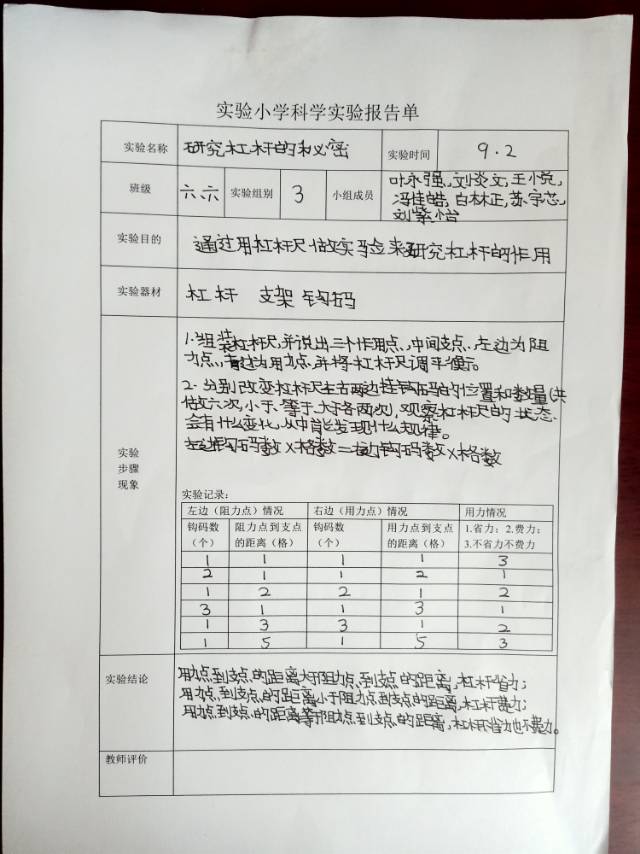 实验小学科学实验报告单
实验名称 研究杠杆的秘密 实验时间 9.2
班级 六六 实验组别 3 小组成员 叶永强,刘炎文,王小悦,
冯佳皓,白林正,苏宇芯,
刘紫怡
实验目的 通过用杠杆尺做实验来研究杠杆的作用
实验器材 杠杆 支架 钩码
实验步骤现象
1.组装杠杆尺,并说出三个作用点,中间支点,左边为阻
力点,右边为用力点,并将杠杆尺调平衡。
2.分别改变杠杆尺左右两边挂钩码的位置和数量(共
做六次,小于、等于、大于各两次),观察杠杆尺的状态
会有什么变化,从中能发现什么规律。
左边钩码数×格数=右边钩码数×格数
实验记录:
左边(阻力点)情况 右边(用力点)情况 用力情况
钩码数(个) 阻力点到支点的距离(格) 钩码数(个) 用力点到支点的距离(格) 1.省力;2.费力;3.不省力不费力
1 1 1 1 3
2 1 1 2 1
1 2 2 1 2
3 1 1 3 1
1 3 3 1 2
1 5 1 5 3
实验结论 用力点到支点的距离大于阻力点到支点的距离,杠杆省力;
用力点到支点的距离小于阻力点到支点的距离,杠杆费力;
用力点到支点的距离等于阻力点到支点的距离,杠杆不省力也不费力。
教师评价